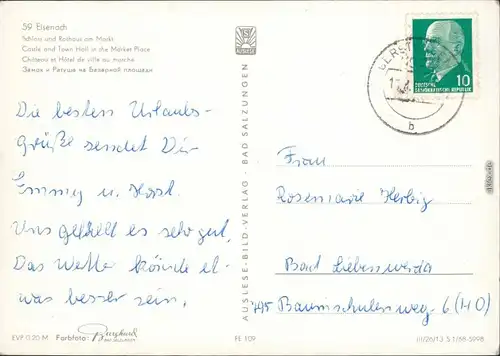 59 Eisenach
Schloss und Rathaus am Markt
Castle and Town Hall in the Market Place
Château et Hôtel de ville au marche
Замок и Ратуше на базарной площади
Die besten Urlaubs-
grüße sendet Dir
Emmy u. Horst.
Uns gefällt es sehr gut.
Das Wetter könnte et-
was besser sein.
EVP 0,20 M Farbfoto: Burghard
BAD SALZUNGEN
AUSLESE-BILD-VERLAG - BAD SALZUNGEN
FE 109
DEUTSCHE
DEMOKRATISCHE REPUBLIK
10
b
Frau
Rosemarie Herbig
Bad Liebenwerda
795 Baumschulenweg 6 (HO)
III/26/13 S 1/68-5998